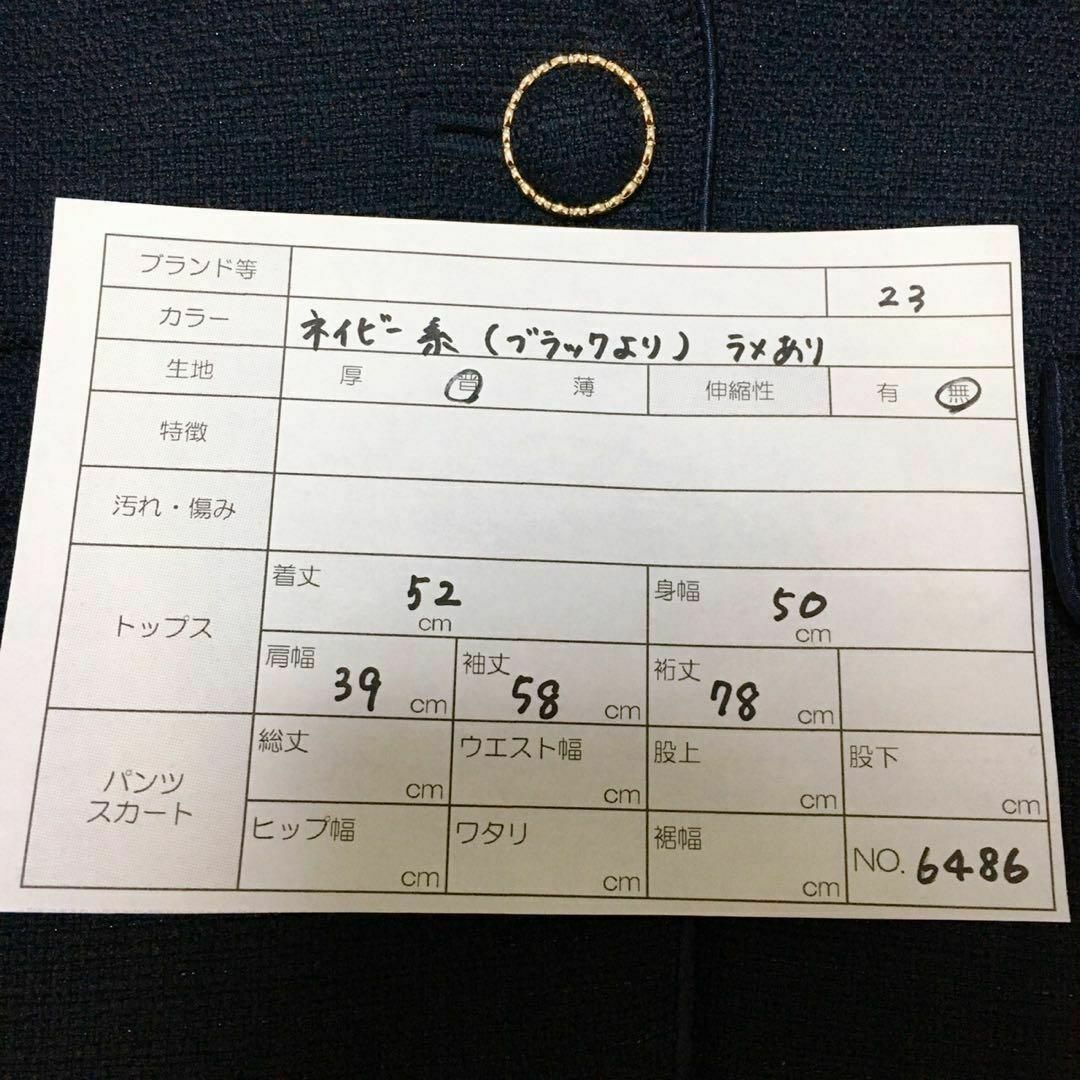 ブランド等 23
カラー ネイビー系(ブラックより) ラメあり
生地 厚 普 薄 伸縮性 有 無
特徴
汚れ・傷み
トップス
着丈 52 cm 身幅 50 cm
肩幅 39 cm 袖丈 58 cm 裄丈 78 cm
パンツ
スカート
総丈 cm ウエスト幅 cm 股上 cm 股下 cm
ヒップ幅 cm ワタリ cm 裾幅 cm NO. 6486